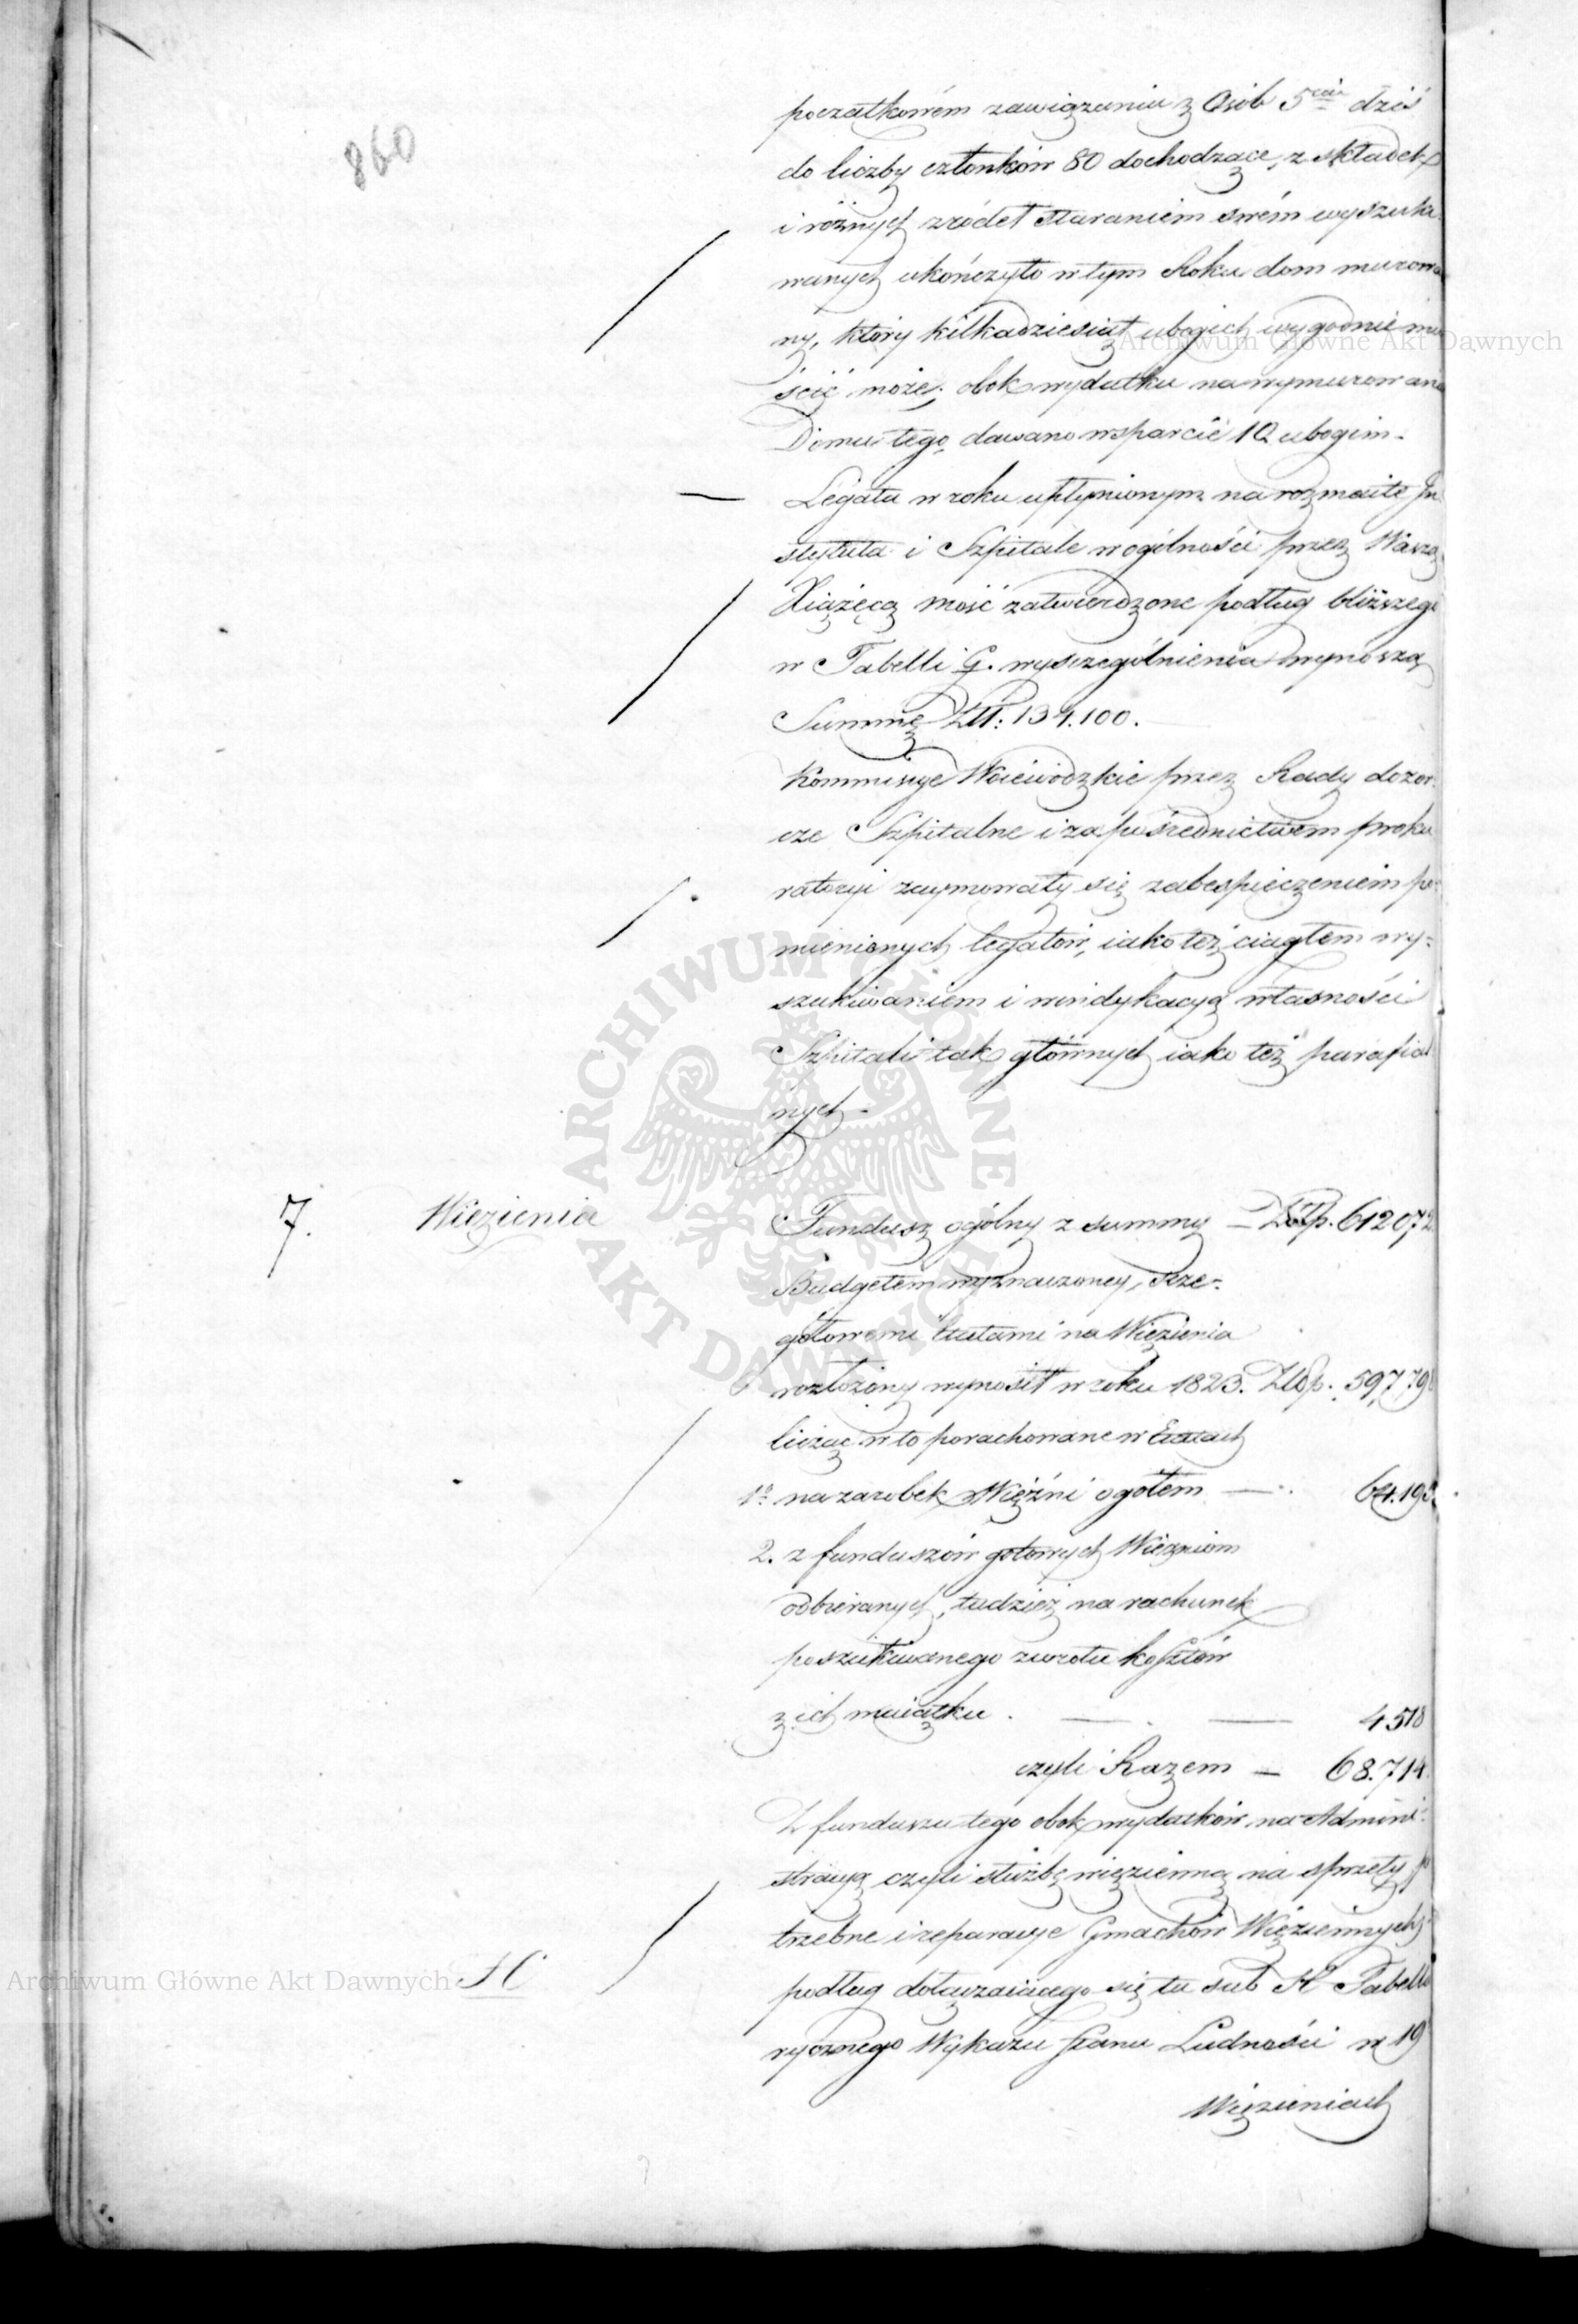 860
początkowém zawiązaniu z Osób 5ciu dziś
do liczby członków 80 dochodzące, z składek
i różnych zródeł staraniem swém wyszuka
wanych ukończyło w tym Roku dom murowa
ny, który kilkadziesiąt ubogich wygodnie mie
ścić może; obok wydatku na wymurowanie
Domu tego, dawano wsparcie 12 ubogim.
Legata w roku upłynionym na rozmaite In
stytuta i Szpitale w ogólności przez Waszą
Xiążęcą mość zatwierdzone podług bliższego
w Tabelli G. wyszczególnienia wynoszą
Summę Złł: 134.100.
Kommisyje Woiewódzkie przez Rady dozor
cze Szpitalne i za pośrednictwem proku
ratoryi zaymowały się zabespieczeniem po
mienionych legatów, iako też ciągłem wy-
szukiwaniem i windykacyą własności
Szpitali tak głównych iako też parafial
nych.
7. Więzienia
Fundusz ogólny z summy – Złp. 612072
Budgetem wyznaczoney, szcze-
gółowemi Etatami na Więzienia
rozłożony wynosił w roku 1823. Złp. 59779
licząc w to porachowane w Etatach
1º na zarobek Więźni ogółem — 64.19
2. z funduszów gotowych Więźniom
odbieranych, tudzież na rachunek
poszukiwanego zwrotu kosztów
z ich maiątku. — 4518
czyli Razem – 68.714
Z funduszu tego obok wydatków na Admini
stracyą czyli służbę więzienną na sprzęty po
trzebne i reparacye Gmachów Więziennych,
H
podług dołączaiącego się tu sub H Tabella
rycznego Wykazu stanu Ludności w 19
Więzieniach
Archiwum Główne Akt Dawnych
Archiwum Główne Akt Dawnych
ARCHIWUM GŁÓWNE AKT DAWNYCH